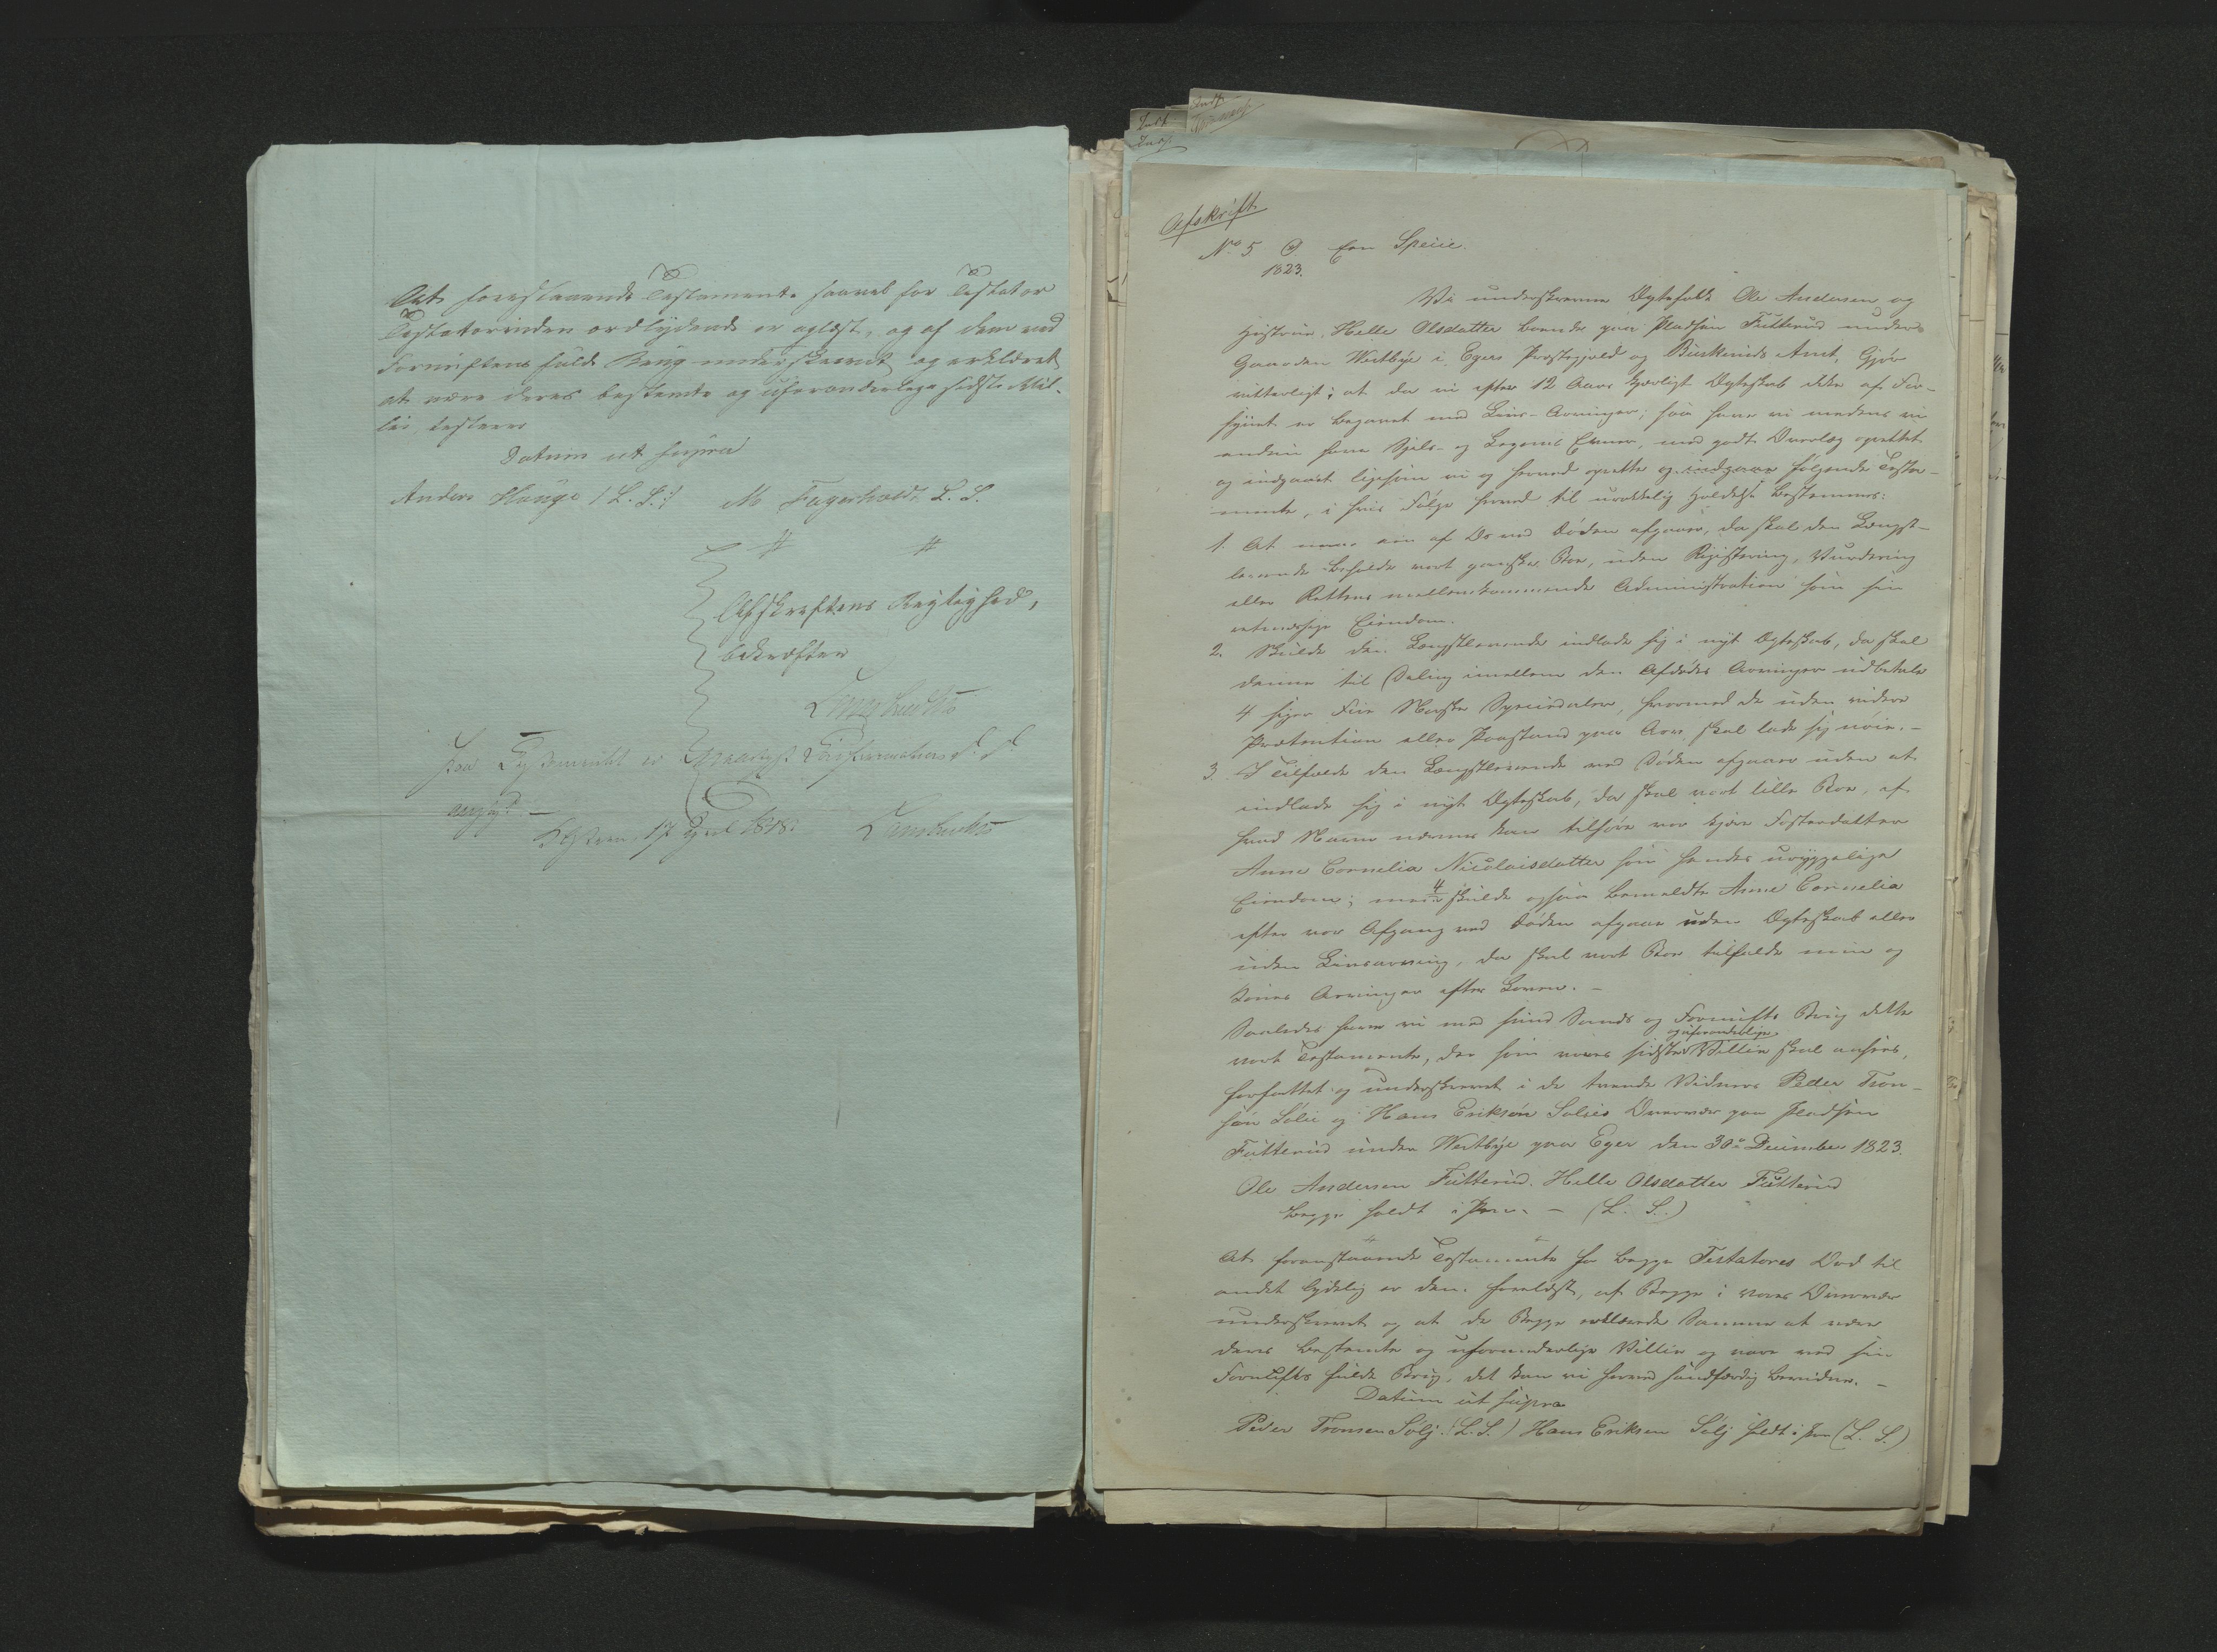 At foreslaaende Testamente saavel for Testator
Testatorinden ordlydende er oplæst, og af dem ved
Fornuftens fulde Brug underskrevet og erklæret
at være deres bestemte og uforanderlige sidste Vil-
lie, testerer
Datum ut supra
Anders Hauge (L. S.) M Fagerholdt L. S.
Afskriftens Rigtighed,
bekræfter
Lambrechts
17 April 1848. Lambrechts
Indf.
Indf.
Afskrift
No 5 Een Specie.
1823.
Vi underskrevne Ægtefolk Ole Andersen og
Hustrue, Helle Olsdatter boende paa Pladsen Futterud under
Gaarden Westbye i Egers Præstegjeld og Buskeruds Amt, Gjøre
vitterligt; at da vi efter 12 Aars kjærligt Ægteskab ikke af For-
synet er begavet med Livs-Arvinger; saa have vi medens vi
endnu have Sjels- og Legems Evner, med godt Overlæg oprettet
og indgaaet ligesom vi og herved oprette og indgaae følgende Testa-
mente, i hvis Følge herved til urokkelig Holdelse bestemmes:
1. At naar een af Os ved Døden afgaaer, da skal den Længst-
levende beholde vort ganske Boe, uden Registering, Vurdering
eller Rettens mellemkommende Administration som sin
retmæssige Eiendom.
2. Skulde den Længstlevende indlade sig i nyt Ægteskab, da skal
denne til Deling imellem den Afdødes Arvinger udbetale
4 siger Fire Norske Speciedaler, hvormed de uden videre
Prætention eller Paastand paa Arv skal lade sig nøie. -
3. I Tilfælde den Længstlevende ved Døden afgaaer uden at
indlade sig i nyt Ægteskab, da skal vort lille Boe, af
hvad Navn nævnes kan tilhøre vor kjære Fosterdatter
Anne Cornelia Nicolaisdatter som hendes uryggelige
Eiendom; men skulde ogsaa bemeldte Anne Cornelia
efter vor Afgang ved Døden afgaae uden Ægteskab eller
uden Livsarving, da skal vort Boe tilfalde min og
Kones Arvinger efter Loven. -
Saaledes have vi med sund Sands og Fornufts Brug dette
og uforanderlige
vort Testamente, der som vores sidste Villie skal ansees,
forfattet og underskrevet i de tvende Vidners Peder Tron-
søn Solie og Hans Eriksøn Solies Overvær paa Pladsen
Futterud under Westbye paa Eger den 30te December 1823.
Ole Andersen Futterud. Helle Olsdatter Futterud
begge holdt i Pen. - (L. S.)
At foranstaaende Testamente for begge Testatores Ord til
andet lydelig er dem forelæst, af Begge i vores Overvær
underskrevet og at de Begge erklærede Samme at være
deres bestemte og uforanderlige Villie og være ved sin
Fornufts fulde Brug, det kan vi herved sandfærdig bevidne. -
Datum ut supra
Peder Tronsen Sølj (L. S.) Hans Eriksen Sølj holdt i Pen (L. S.)